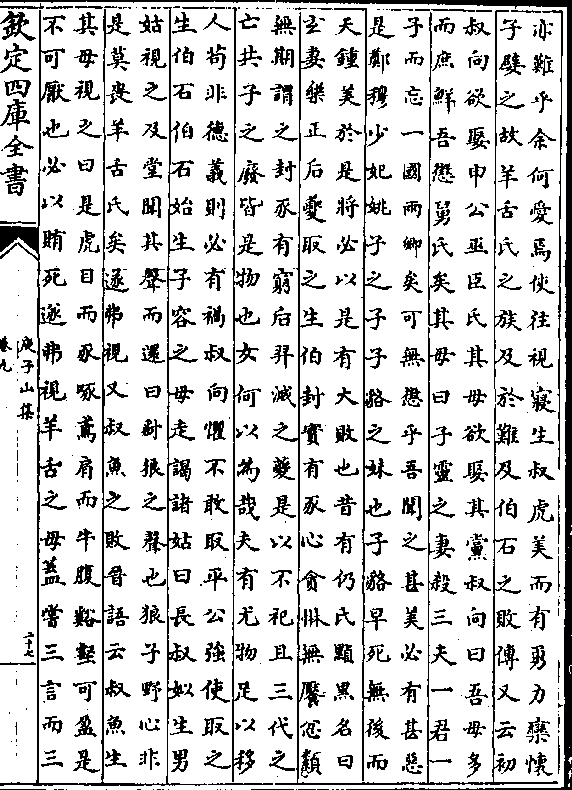 亦難乎余何愛焉使往視寢生叔虎美而有勇力欒懷
子嬖之故羊舌氏之族及於難及伯石之敗傳又云初
叔向欲娶申公巫臣氏其母欲娶其黨叔向曰吾母多
而庶鮮吾懲舅氏矣其母曰子靈之妻殺三夫一君一
子而忘一國兩卿矣可無懲乎吾聞之甚美必有甚惡
是鄭穆少妃姚子之子子貉之妹也子貉早死無後而
天鍾美於是將必以是有大敗也昔有仍氏顯黑名曰
玄妻樂正后夔取之生伯封實有豕心貪惏無饜忿纇
無期謂之封豕有窮后羿滅之夔是以不祀且三代之
亡共子之廢皆是物也女何以為哉夫有尤物足以移
人苟非德義則必有禍叔向懼不敢取平公強使取之
生伯石伯石始生子容之母走謁諸姑曰長叔姒生男
姑視之及堂聞其聲而還曰豺狼之聲也狼子野心非
是莫喪羊舌氏矣遂弗視又叔魚之敗晉語云叔魚生
其母視之曰是虎目而豕啄鳶肩而牛腹谿壑可盈是
不可厭也必以賄死遂弗視羊舌之母蓋嘗三言而三
欽定四庫全書
庾子山集
卷九
二十七